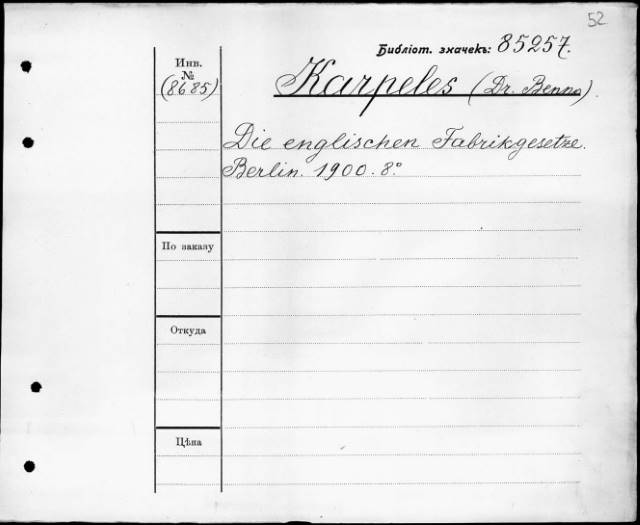 52
Библіот. значекъ: 85257.
Инв.
№
(8685)
Karpeles (Dr. Benno).
Die englischen Fabrikgesetze.
Berlin. 1900. 8º
По заказу
Откуда
Цѣна